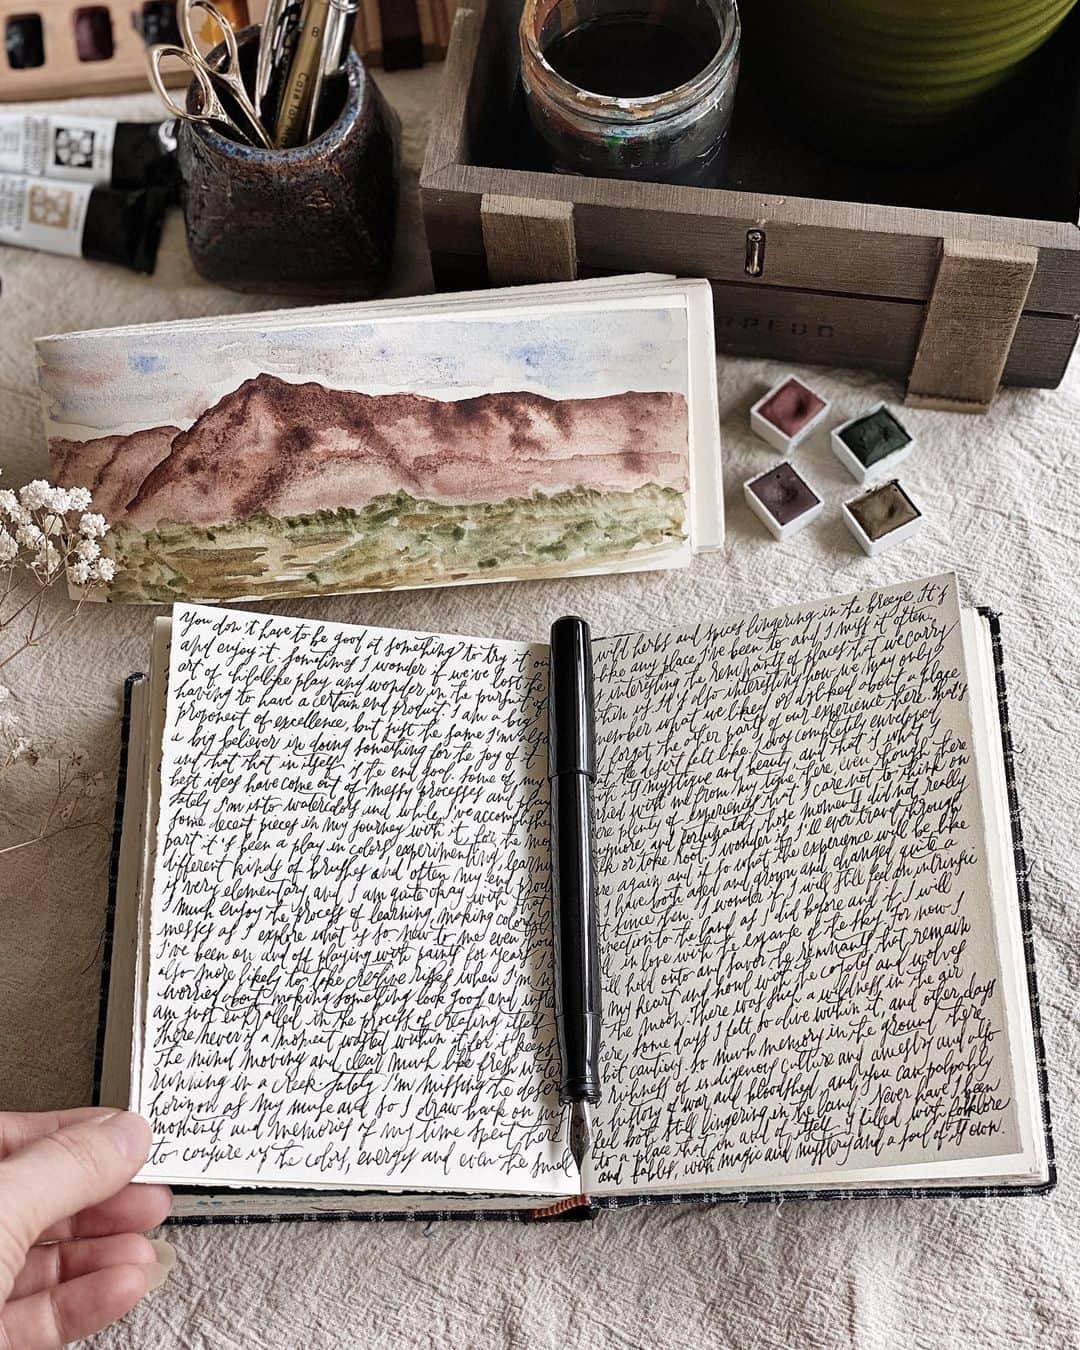 You don't have to be good at something to try it out
and enjoy it. Sometimes I wonder if we've lost the
art of childlike play and wonder in the pursuit of
having to have a certain end product. I am a big
proponent of excellence, but just the same I'm also
a big believer in doing something for the joy of it
and that that in itself is the end goal. Some of my
best ideas have come out of messy processes and play.
Lately I'm into watercolors and while I've accomplished
some decent pieces in my journey with it, for the most
part it's been a play in colors, experimenting, learning
different kinds of brushes and often my end product
is very elementary, and I am quite okay with that.
I much enjoy the process of learning, making colorful
messes as I explore what is so new to me even though
I've been on and off playing with paint for years. I'm
also more likely to take creative risks when I'm not
worried about making something look good and instead
am just enthralled in the process of creating itself.
There never is a moment wasted within it for it keeps
the mind moving and clear much like fresh water
running in a creek. Lately I'm missing the desert
horizon as my muse and so I draw back on my
moments and memories of my time spent there
to conjure up the colors, energy and even the smell
wild herbs and spices lingering in the breeze. It's
like any place I've been to and I miss it often.
interesting the remnants of places that we carry
then us. It's also interesting how we may only
member what we liked or disliked about a place
forget the other parts of our experience there. That's
the desert felt like. I was completely enveloped
its mystique and beauty, and that is what I
carried with me from my time there, even though there
were plenty of experiences that I care not to think on
anymore, and fortunately those moments did not really
or take root. I wonder if I'll ever travel through
there again and if so what the experience will be like
I have both aged and grown and changed quite a
since then. I wonder if I will still feel an intrinsic
connection to the land as I did before and if I will
in love with the expanse of the sky. For now I
will hold onto and favor the remnants that remain
my heart and howl with the coyotes and wolves
the moon. There was such a wildness in the air
here, some days I felt so alive within it, and other days
bit cautious. So much memory in the ground there
richness of indigenous culture and ancestry and also
a history of war and bloodshed, and you can palpably
feel both still lingering in the land. Never have I been
to a place that in and of itself is filled with folklore
and fables, with magic and mystery and a soul of its own.